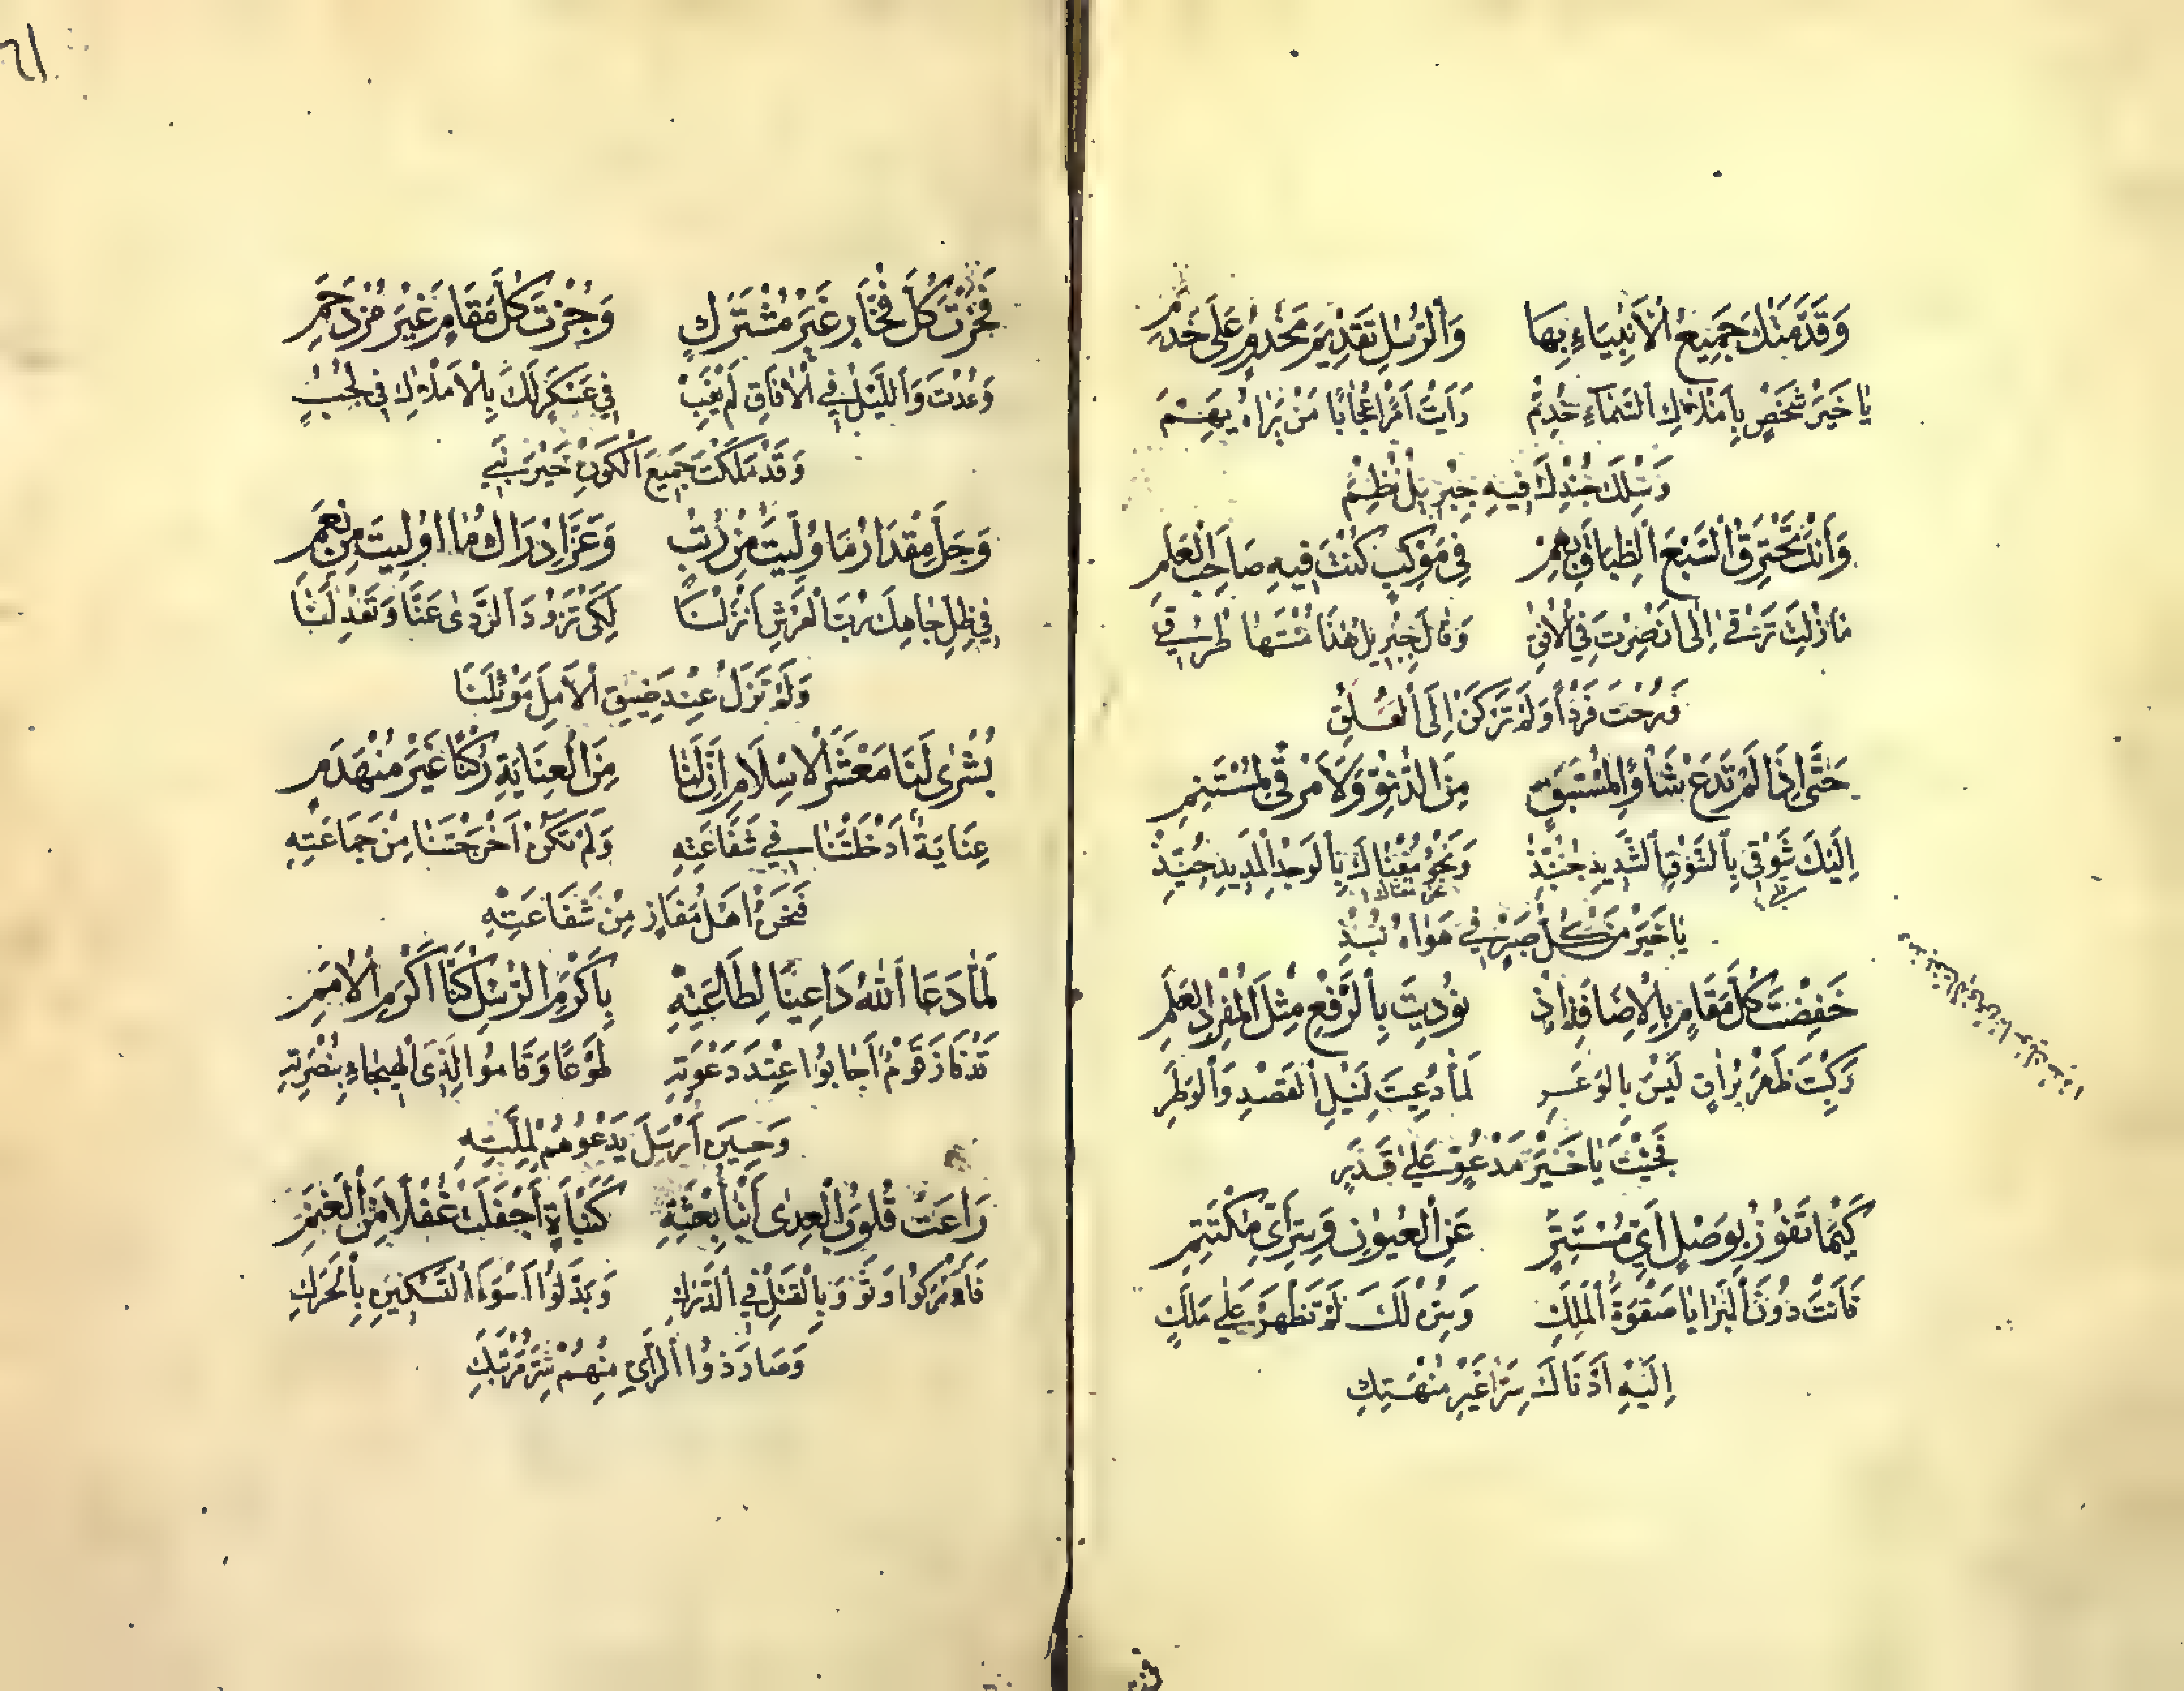 وَقَدَّمَتْكَ جَمِيعُ الْأَنْبِيَاءِ بِهَا وَالرُّسْلِ تَقْدِيمَ مَخْدُومٍ عَلَى خَدَمِ
يَا خَيْرَ شَخْصٍ بِأَمْلَاكِ السَّمَاءِ خُدِمْ رَأَيْتَ أَمْرًا عُجَابًا مَنْ يَرَاهُ يَهِمْ
وَسِلْكَ جُنْدِكَ فِيهِ جِبْرِيلُ نُظِمْ
وَأَنْتَ تَخْتَرِقُ السَّبْعَ الطِّبَاقَ بِهِمْ فِي مَوْكِبٍ كُنْتَ فِيهِ صَاحِبَ الْعَلَمِ
مَا زِلْتَ تَرْقَى إِلَى أَنْ صِرْتَ فِي الْأُفُقِ وَقَالَ جِبْرِيلُ هٰذَا مُنْتَهَا طُرُقِي
فَرُحْتَ فَرْدًا وَلَمْ تَرْكَنْ إِلَى الْفَلَقِ
حَتَّى إِذَا لَمْ تَدَعْ شَأْوًا لِمُسْتَبِقٍ مِنَ الدُّنُوِّ وَلَا مَرْقًى لِمُسْتَنِمِ
إِلَيْكَ شَوْقِي بِالشَّوْقِ الشَّدِيدِ جُبِذْ وَنَحْوَ مَغْنَاكَ بِالْوَجْدِ الْمَدِيدِ جُبِذْ
يَا خَيْرَ مَنْ كُلُّ صَبْرٍ فِي هَوَاهُ نُبِذْ
خَفَضْتَ كُلَّ مَقَامٍ بِالْإِضَافَةِ إِذْ نُودِيتَ بِالرَّفْعِ مِثْلَ الْمُفْرَدِ الْعَلَمِ
رَكِبْتَ ظَهْرَ بُرَاقٍ لَيْسَ بِالْوَعِرِ لَمَّا دُعِيتَ لِنَيْلِ الْقَصْدِ وَالْوَطَرِ
فَجِئْتَ يَا خَيْرَ مَدْعُوٍّ عَلَى قَدَرِ
كَيْمَا تَفُوزَ بِوَصْلٍ أَيِّ مُسْتَتِرٍ عَنِ الْعُيُونِ وَسِرٍّ أَيِّ مُكْتَتِمِ
فَأَنْتَ دُونَ الْبَرَايَا صَفْوَةُ الْمَلِكِ وَسِرُّهُ لَكَ لَمْ تَظْهَرْ عَلَى مَلَكٍ
إِلَيْهِ أَدْنَاكَ سِرًّا غَيْرَ مُنْهَتِكِ
٦١
فَحُزْتَ كُلَّ فَخَارٍ غَيْرَ مُشْتَرَكٍ وَجُزْتَ كُلَّ مَقَامٍ غَيْرَ مُزْدَحَمِ
وَعُدْتَ وَاللَّيْلُ فِي الْآفَاقِ لَمْ يَغِبْ فِي عَسْكَرٍ لَكَ بِالْأَمْلَاكِ فِي لَجَبٍ
وَقَدْ مَلَكْتَ جَمِيعَ الْكَوْنِ خَيْرَ نَبِي
وَجَلَّ مِقْدَارُ مَا وُلِّيتَ مِنْ رُتَبٍ وَعَزَّ إِدْرَاكُ مَا أُولِيتَ مِنْ نِعَمِ
فِي ظِلِّ جَاهِكَ رَبُّ الْعَرْشِ أَنْزَلَنَا لِكَيْ تَرُودَ الرَّدَى عَنَّا وَتَعْدِلَنَا
وَلَمْ تَزَلْ عِنْدَ ضِيقِ الْأَمْلِ مَوْئِلَنَا
بُشْرَى لَنَا مَعْشَرَ الْإِسْلَامِ إِنَّ لَنَا مِنَ الْعِنَايَةِ رُكْنًا غَيْرَ مُنْهَدِمِ
عِنَايَةٌ أَدْخَلَتْنَا فِي شَفَاعَتِهِ وَلَمْ تَكُنْ أَخْرَجَتْنَا مِنْ جَمَاعَتِهِ
فَنَحْنُ أَهْلُ مَفَازٍ مِنْ شَفَاعَتِهِ
لَمَّا دَعَا اللهُ دَاعِينَا لِطَاعَتِهِ بِأَكْرَمِ الرُّسْلِ كُنَّا أَكْرَمَ الْأُمَمِ
قَدْ فَازَ قَوْمٌ أَجَابُوا عِنْدَ دَعْوَتِهِ طَوْعًا وَقَامُوا لَدَى الْهَيْجَاءِ بِنُصْرَتِهِ
وَحِينَ أَرْسَلَ يَدْعُوهُمْ لِمِلَّتِهِ
رَاعَتْ قُلُوبَ الْعِدَى أَنْبَاءُ بِعْثَتِهِ كَنَبْأَةٍ أَجْفَلَتْ غُفْلًا مِنَ الْغَنَمِ
وَبَدَّلُوا أَسْوَأَ التَّسْكِينِ بِالْحَرَكِ
وَصَارَ ذُو الرَّأْيِ مِنْهُمْ شَرَّ مُرْتَبِكِ